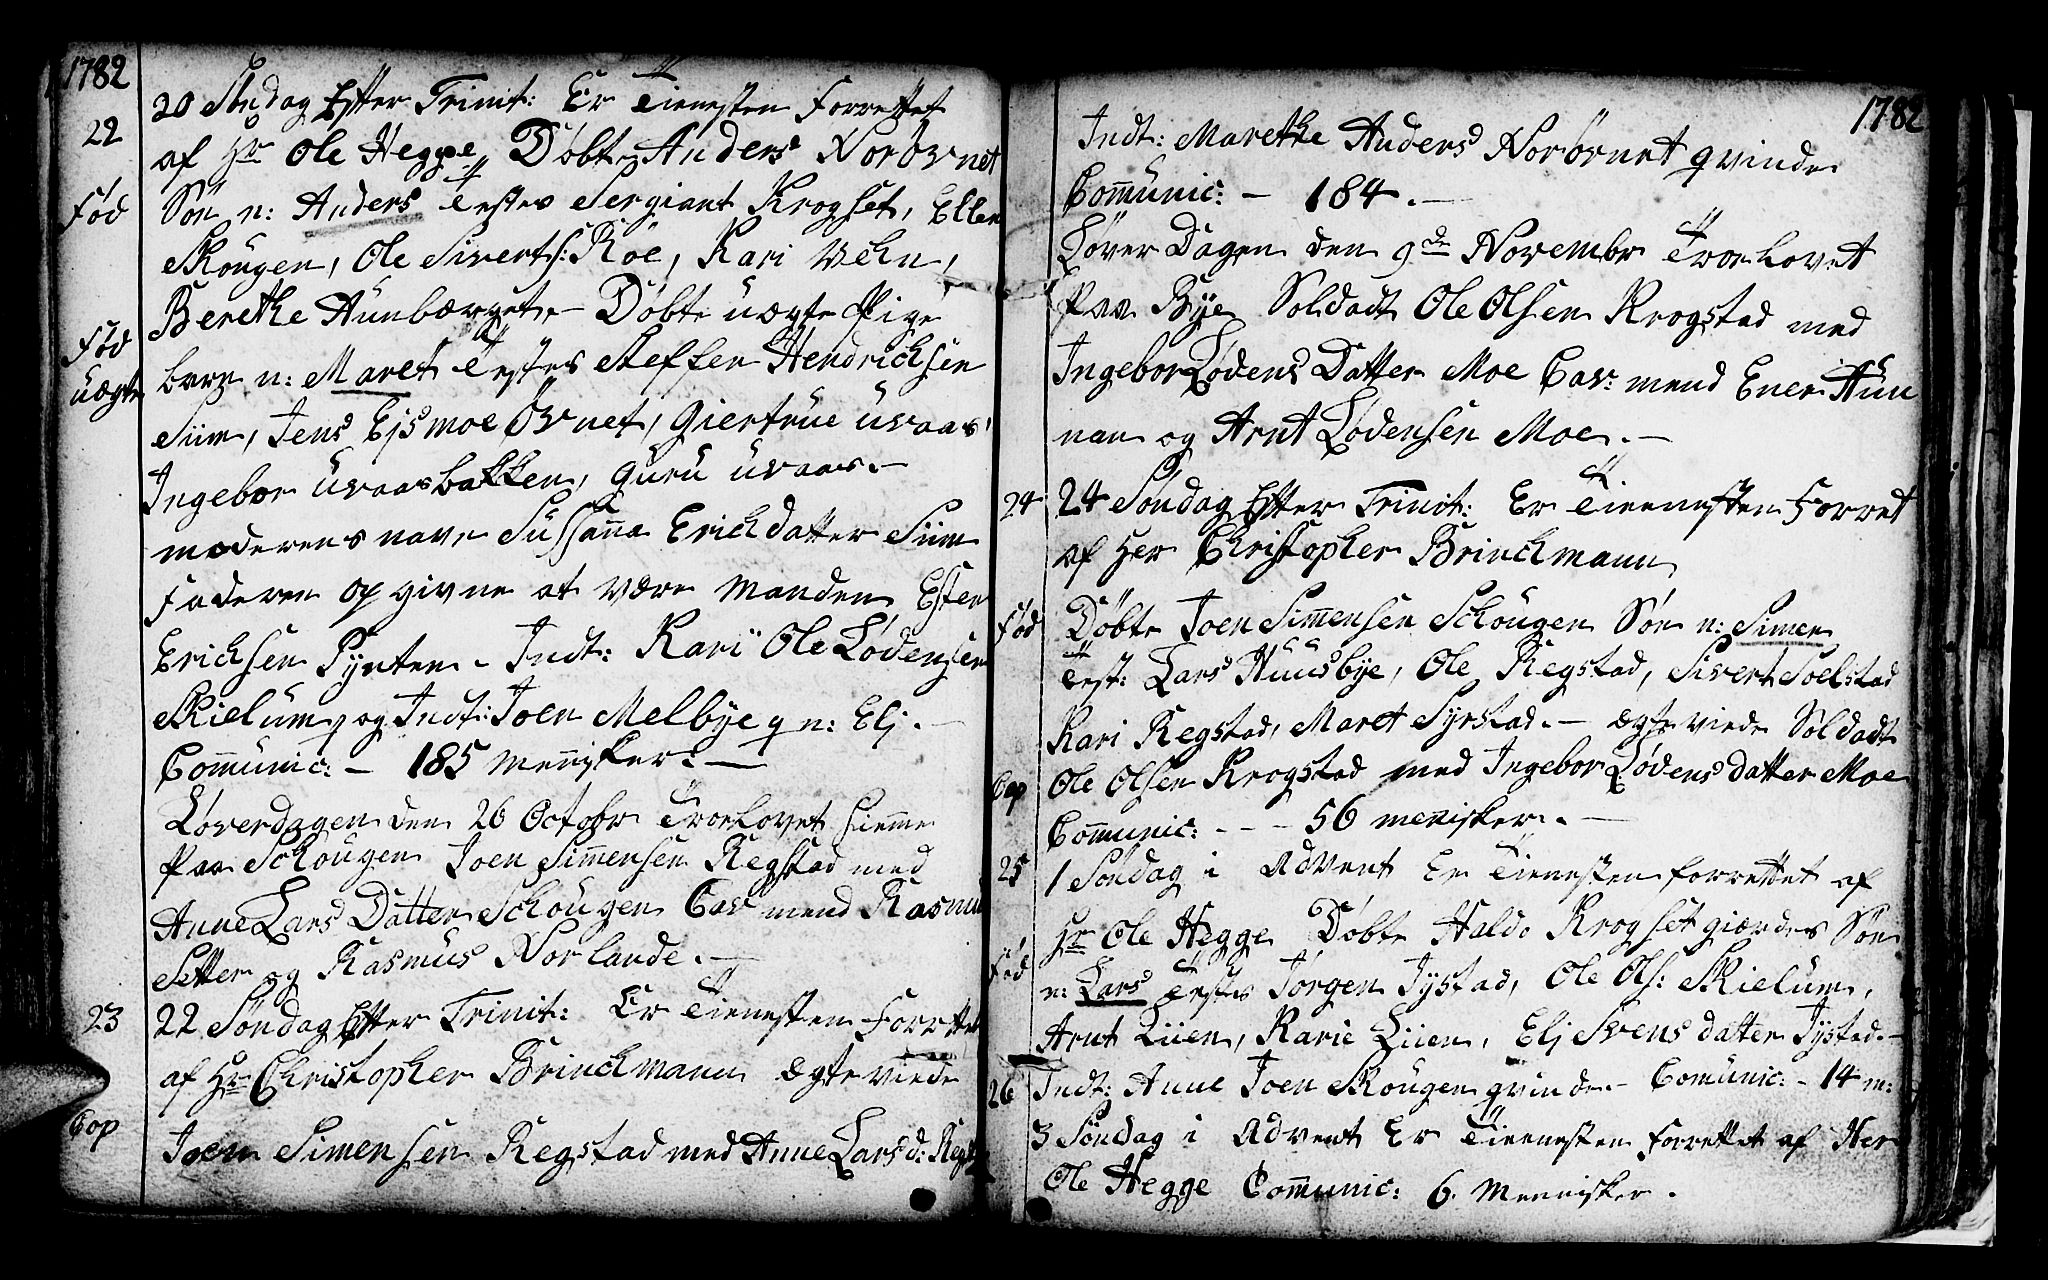 1782
22
20 Søndag Efter Trinit: Er Tienesten Forrettet
af Hr Ole Hegge Døbt Anders Norøvnet
Fød
Søn n: Anders Testes Sergiant Krogset, Ellen
Skougen, Ole Siverts: Röe, Kari Vehn,
Berethe Aunbærget. - Døbt uægte Pige
Fød
uægte
barn n: Maret Testes Steffen Hendrichsen
Siim, Jens Ejsmoe Övnet, Giertrue uvaas,
Ingebor uvaasbakken, Guru uvaas. -
moderens navn Sussanna Erichdatter Siim
Faderen opgivne at være manden Esten
Erichsen Pynten - Indt: Kari Ole Lødensen
Skielum q og Indt: Joen Melbye q n: Elj. -
Communic: - 185 mennisker: -
Løverdagen den 26 Octobr Troelovet hiemme
Paa Schougen Joen Simmensen Regstad med
Anne Lars Datter Schougen Cav mend Rasmus
Setter og Rasmus Norlande. -
23
22 Søndag Efter Trinit: Er Tienesten Forrettet
af Hr Christopher Brinchmann ægte viede
Cop
Joen Simensen Regstad med Anne Larsd: Regst
1782
Indt: Marethe Anders Norörnet qvinde
Communic: - 184. -
Løver Dagen den 9de Novembr Troelovet
Paa Bye Soldadt Ole Olsen Krogstad med
Ingebor Lødens Datter Moe Cav: mend Ener Aun
nan og Arnt Lødensen Moe. -
24
24 Søndag Efter Trinit: Er Tienesten Forret
af Her Christopher Brinchmann
Fød
Døbt Joen Simensen Schougen Søn n: Simen
Test: Lars Huusbye, Ole Regstad, Sivert Soelstad
Kari Regstad, Maret Syrstad. - ægte viede Soldadt
Cop
Ole Olsen Krogstad med Ingebor Lødensdatter Moe
Communic: - - - 56 menisker. -
25
1 Søndag i Advent Er Tienesten forrettet af
Hr Ole Hegge Døbt Haldo Krogset giærdes Søn
Fød
n: Lars Testes Jørgen Jystad, Ole Ols: Skielum,
Arnt Liien, Karie Liien, Elj Svensdatter Jystad. -
26
Indt: Anne Joen Skougen qvinde. - Comunic: - 14 m:
3 Søndag i Advent Er Tienesten forrettet af Her
Ole Hegge Communic: 6. Mennisker.